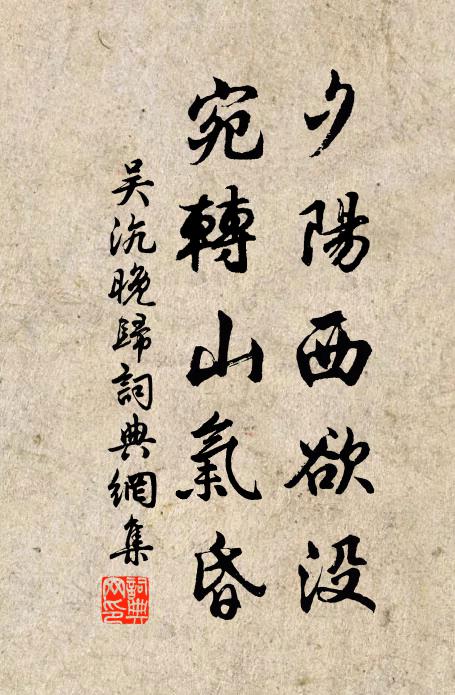 夕陽西欲没
宛轉山氣昏
吴沉晚歸詞典網集
詞典網印